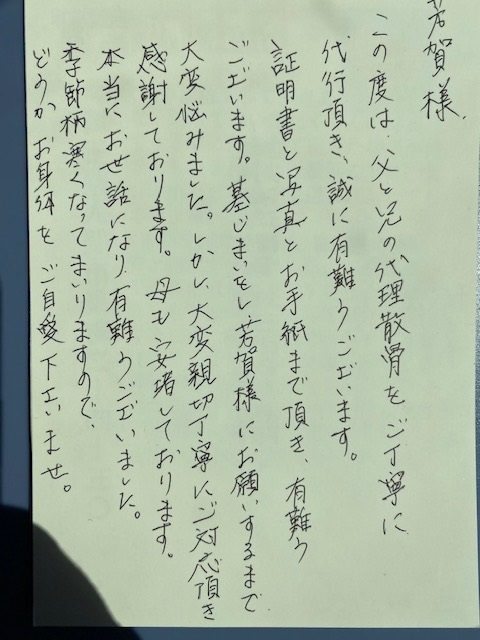 芳賀様
この度は、父と兄の代理散骨をご丁寧に
代行頂き、誠に有難うございます。
証明書と写真とお手紙まで頂き、有難う
ございます。墓じまいをし、芳賀様にお願いするまで
大変悩みました。しかし、大変親切丁寧にご対応頂き
感謝しております。母も安堵しております。
本当にお世話になり、有難うございました。
季節柄寒くなってまいりますので、
どうかお身体をご自愛下さいませ。